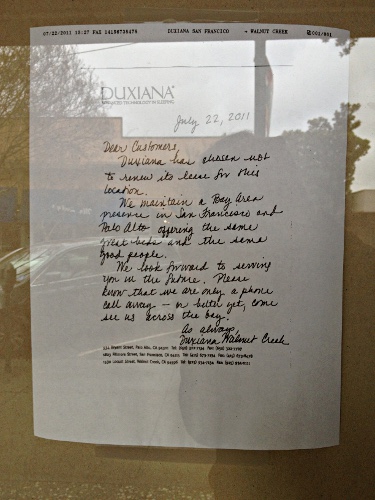 07/22/2011 10:27 FAX 14159738476 DUXIANA SAN FRANCISCO → WALNUT CREEK 001/001
DUXIANA
ADVANCED TECHNOLOGY IN SLEEPING
July 22, 2011
Dear Customers,
Duxiana has chosen not
to renew its lease for this
location.
We maintain a Bay Area
presence in San Francisco and
Palo Alto offering the same
great beds and the same
good people.
We look forward to serving
you in the future. Please
know that we are only a phone
call away — or better yet, come
see us across the bay.
As always,
Duxiana Walnut Creek
Street, Palo Alto, CA Tel: Fax:
Street, San Francisco, CA Tel: Fax:
Locust Street, Walnut Creek, CA Tel: Fax: